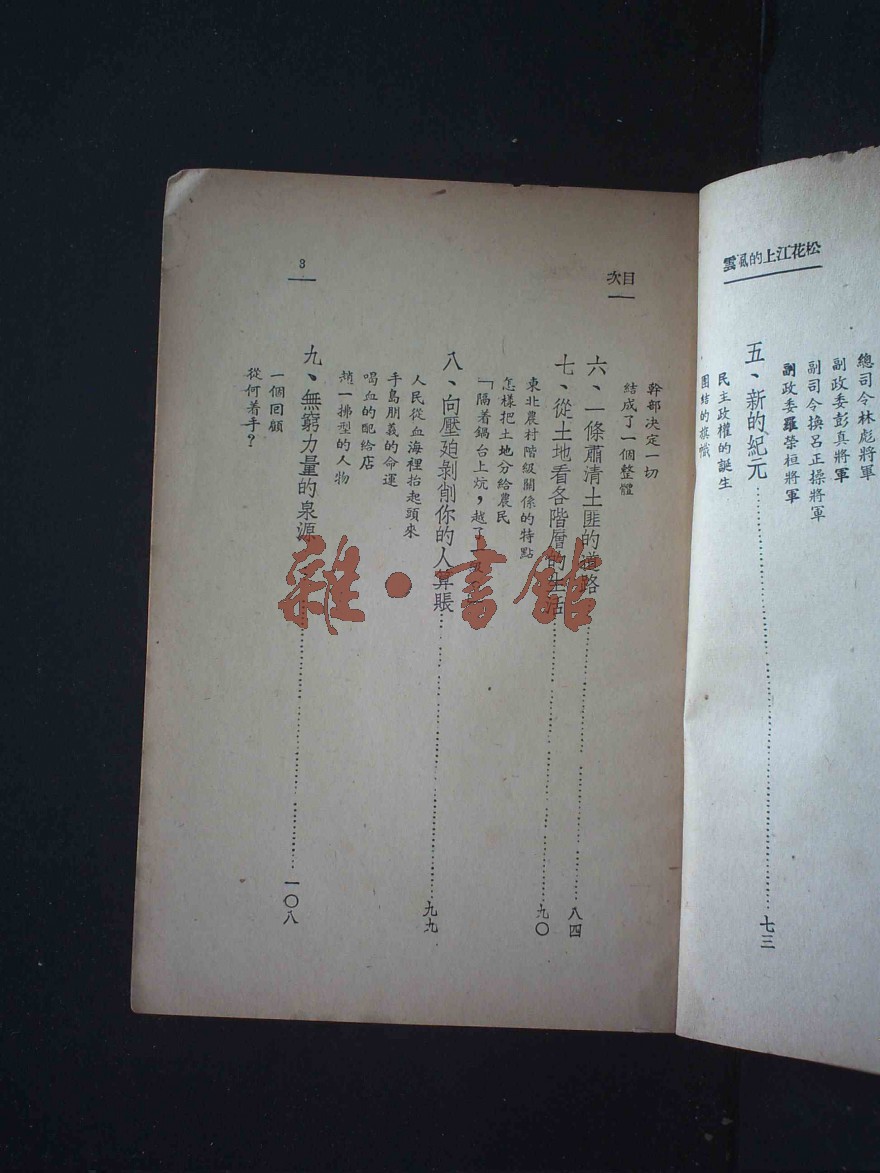 松花江上的風雲
總司令林彪將軍
副政委彭真將軍
副司令換呂正操將軍
副政委羅榮桓將軍
五、新的紀元 七三
民主政權的誕生
團結的旗幟
目次
幹部决定一切
結成了一個整體
六、一條肅清土匪的道路 八四
七、從土地看各階層的生活 九〇
東北農村階級關係的特點
怎樣把土地分給農民
「隔着鍋台上炕，越了
八、向壓廹剝削你的人算賬 九九
人民從血海裡抬起頭來
手島朋義的命運
喝血的配給店
趙一拂型的人物
九、無窮力量的泉源 一〇八
一個回顧
從何着手？
3
雜·書館